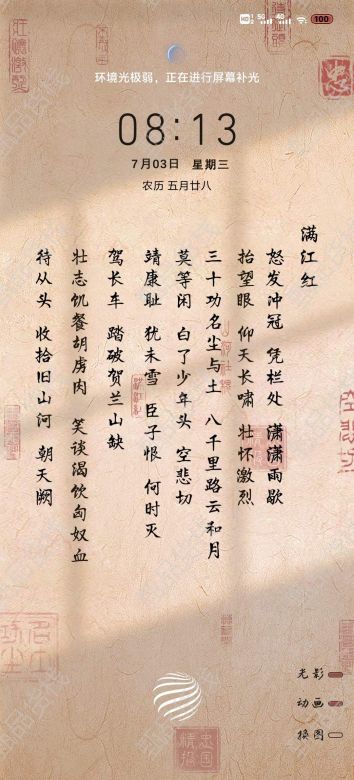 HD 5G 4G 100
环境光极弱，正在进行屏幕补光
08:13
7月03日 星期三
农历 五月廿八
满江红
怒发冲冠 凭栏处 潇潇雨歇
抬望眼 仰天长啸 壮怀激烈
三十功名尘与土 八千里路云和月
莫等闲 白了少年头 空悲切
靖康耻 犹未雪 臣子恨 何时灭
驾长车 踏破贺兰山缺
壮志饥餐胡虏肉 笑谈渴饮匈奴血
待从头 收拾旧山河 朝天阙
光影
动画
换图